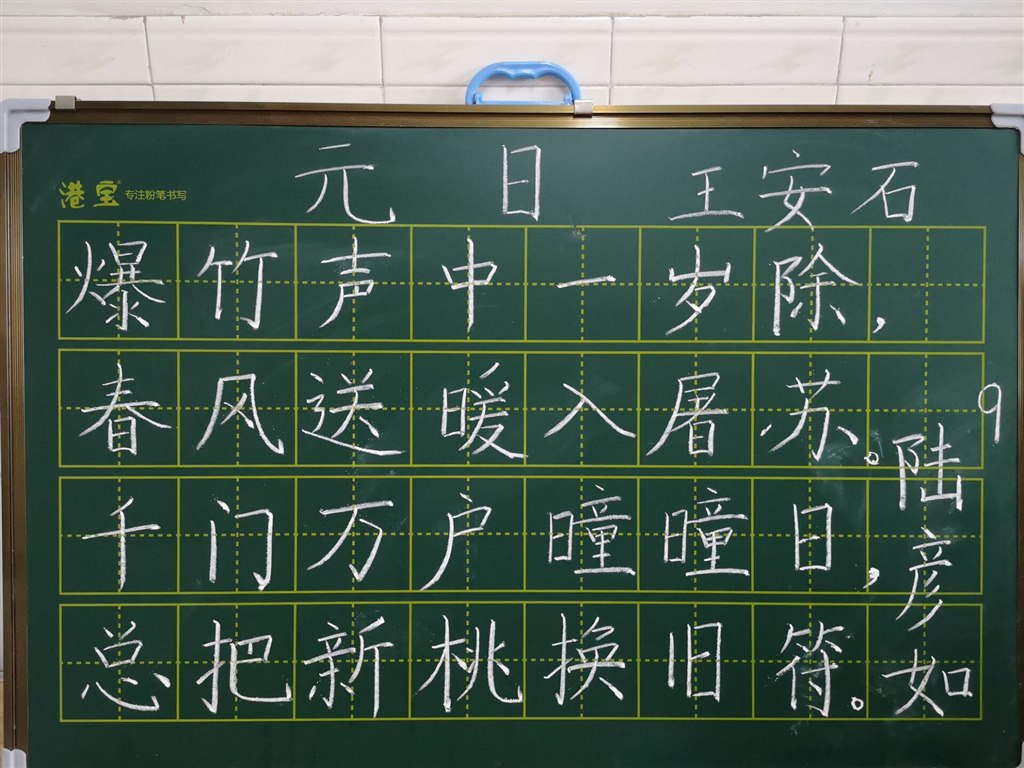 港宝 专注粉笔书写
元日 王安石
爆竹声中一岁除,
春风送暖入屠苏。
千门万户曈曈日,
总把新桃换旧符。
9
陆彦如